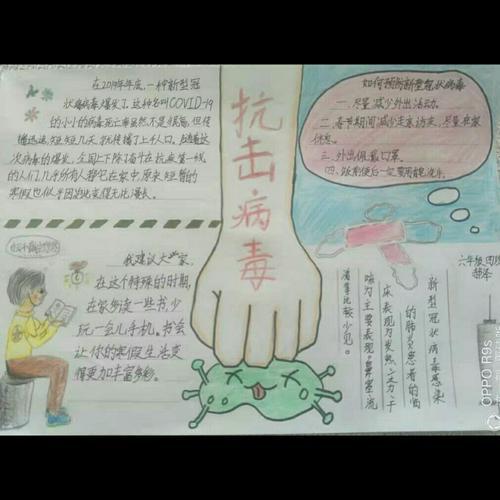 在2019年年底,一种新型冠
状病毒爆发了,这种名叫COVID-19
的小小的病毒死亡率虽然不是很高,但传
播迅速,短短几天,就传播了上千人口。
次病毒的爆发,全国上下除了奋斗在抗疫第一线
的人们,几乎所有人都宅在家中,原来短暂的
寒假也似乎因此变得无比漫长。
抗击病毒
如何预防新型冠状病毒
一、尽量减少外出活动。
二、春节期间减少走亲访友,尽量在家
休息。
三、外出佩戴口罩。
四、饭前便后一定要用
我建议大家,
在这个特殊的时期,
在家多读一些书,少
玩一会儿手机。书会
让你的寒假生活变
得更加丰富多彩。
新型冠状病毒感染
的肺炎患者的临
床表现为发热、乏力、干
咳为主要表现。鼻塞、流
涕等比较少见。
六年级四班
OPPO R9s